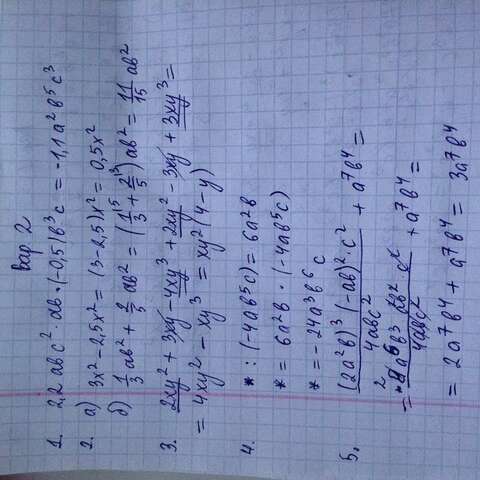 Вар 2
1. 2,2 abc² · ab · (-0,5)b³c = -1,1a²b⁵c³
2. а) 3x² - 2,5x² = (3-2,5)x² = 0,5x²
б) 1/3 ab² + 2/5 ab² = (1/3^15 + 2/5^13)ab² = 11/15 ab²
3. 2xy² + 3xy - 4xy³ + 2xy² - 3xy + 3xy³ =
= 4xy² - xy³ = xy²(4-y)
4. * : (-4ab⁵c) = 6a²b
* = 6a²b · (-4ab⁵c)
* = -24a³b⁶c
5. (2a²b)³(-ab)²·c² / 4abc² + a⁷b⁴ =
= 8a⁶b³ a²b² c² / 4abc² + a⁷b⁴ =
= 2a⁷b⁴ + a⁷b⁴ = 3a⁷b⁴